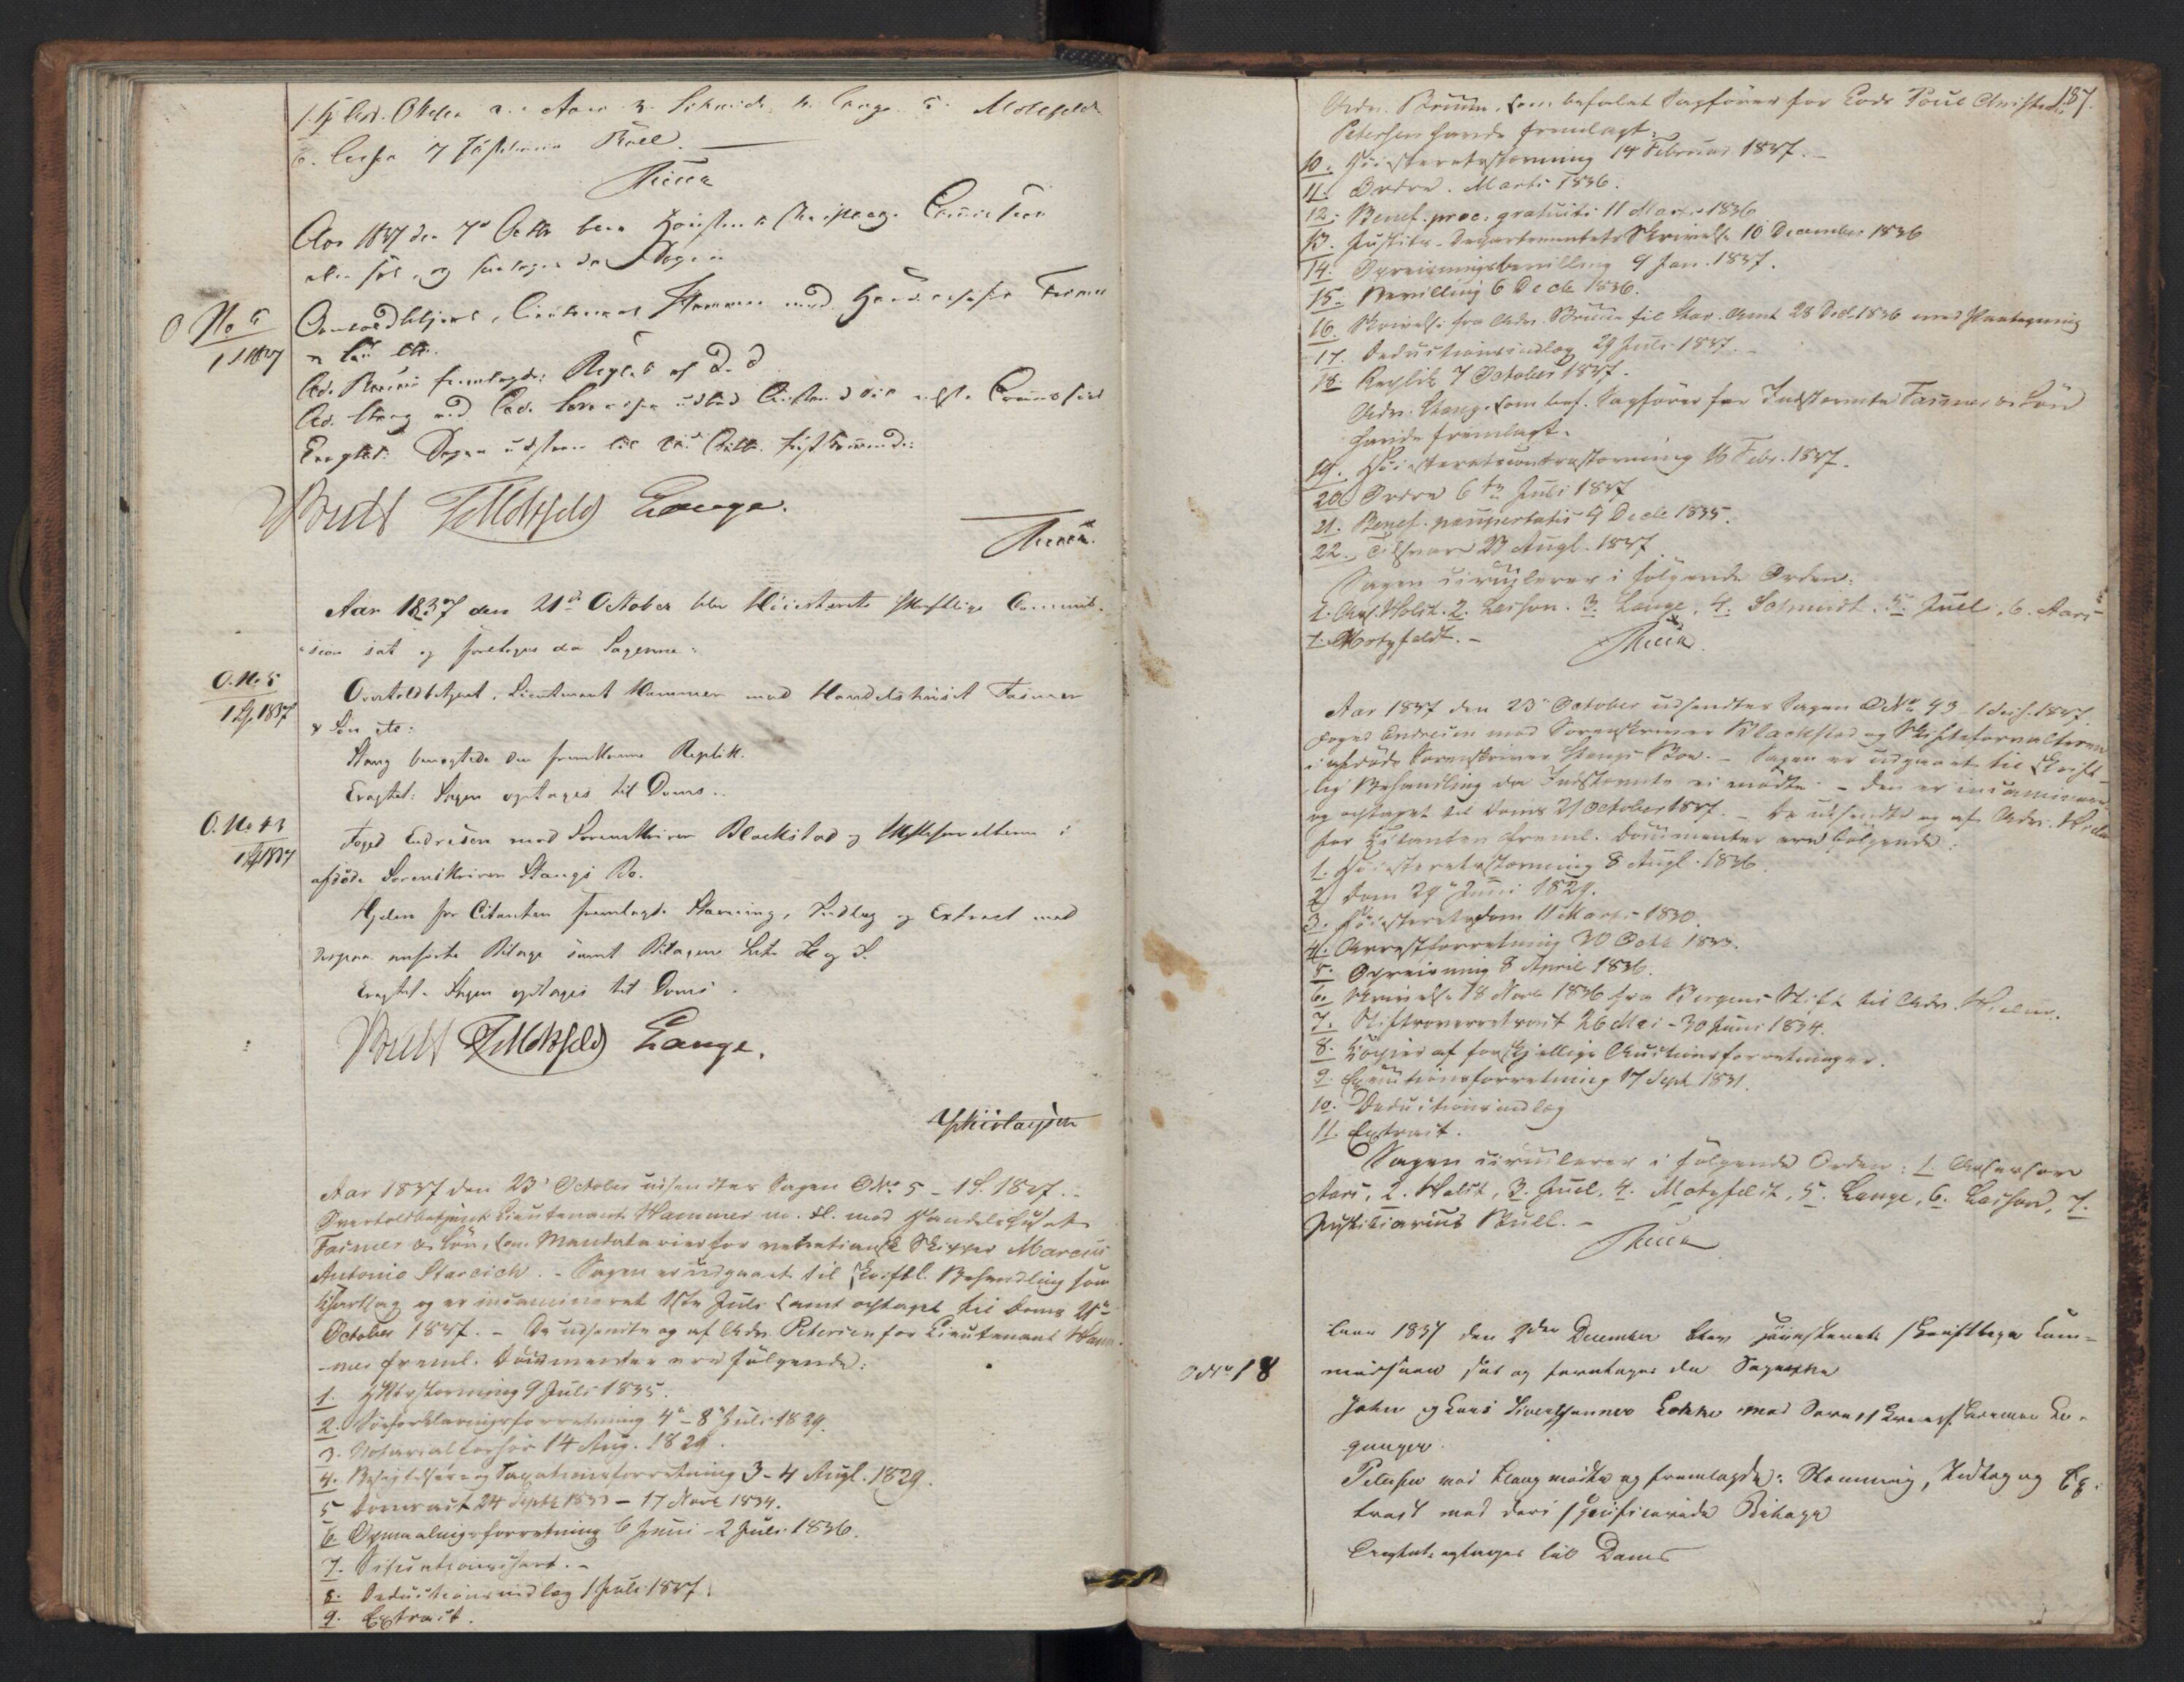 1. Holst. 2. Aars 3. Schmidt 4. Lange 5. Motzfeldt
6. Lasson 7 Justitiarius Bull.
Aar 1837 den 7de Octbr blev Høiesterets skriftlige Commission
sat og foretoges da Sagen
O No 5
1 S 1837
Overtoldbetjent, Lieutenant Hammer mod Handelshuset Fasmer
& Søn etc.
Adv. Bruun fremlagde: Replik af D. D
Adv. Stang ved Adv. udbad Anstand til næste Commission
Eragtet: Sagen udstaar til 21de Octbr. førstkommende:
Bull Motzfeldt Lange.
Aar 1837 den 21de October blev Høiesterets skriftlige Commis-
sion sat og foretoges da Sagerne:
O. No 5
1 S, 1837
Overtoldbetjent, Lieutenant Hammer mod Handelshuset Fasmer
& Søn etc:
Stang benegtede den fremkomne Replik.
Eragtet: Sagen optages til Doms.
O. No 43
1 S 1837
Foged Endresen mod Sorenskriver Blackstad og Skifteforvalteren i
afdøde Sorenskriver Stangs Bo.
Hjelm for Citanten fremlagde Stævning, Indlæg og Extract med
derpaa anførte Bilage samt Bilagene Litr. H og S.
Eragtet. Sagen optages til Doms.
Bull Motzfeldt Lange.
Aar 1837 den 23de October udsendtes Sagen O No 5 - 1 S. 1837.
Overtoldbetjent Lieutenant Hammer m. fl. mod Handelshuset
Fasmer & Søn, som Mandatarier for venetiansk Skipper Marcus
Antonio Starcich. - Sagen er udgaaet til skriftl. Behandling som
vidtløftig og er incamineret 1ste Juli samt optaget til Doms 21de
October 1837. - De udsendte og af Adv. Petersen for Lieutenant Ham-
mer freml. Documenter ere følgende:
1. Høiesteretsstævning 9 Juli 1835.
2. Søforklaringsforretning 4de - 8de Juli 1829.
3. Notarialforhør 14 Aug. 1829.
4. Besigtelses- og Taxationsforretning 3 - 4 Augt. 1829.
5 Domsact 24 Septbr 1833 - 17 Novbr 1834.
6. Opmaalingsforretning 6 Juni - 2 Juli 1836.
7. Situationskart. -
8. Deductionsindlæg 1 Juli 1837.
9. Extract.
187.
Adv. Bruun, som befalet Sagfører for Lods Poul Christian
Petersen havde fremlagt:
10. Høiesteretsstævning 14 Februar 1837. -
11. Ordre. Marts 1836.
12. Benef. proc. gratuiti 11 Marts 1836
13. Justits-Departementets Skrivelse 10 December 1836
14. Opreisningsbevilling 9 Jan. 1837.
15. Bevilling 6 Decbr 1836.
16. Skrivelse fra Adv. Bruun til Stav. Amt 28 Decbr 1836 med Paategning
17. Deductionsindlæg 29 Juli 1837. -
18. Replik 7 October 1837.
Adv. Stang, som bef. Sagfører for Indstævnte Fasmer & Søn
havde fremlagt.
19. Høiesteretscontrastævning 16 Febr. 1837.
20. Ordre 6te Juli 1837
21. Benef. paupertatis 9 Decbr 1835.
22. Tilsvar 23 Augt. 1837
Sagen circulerer i følgende Orden:
1. Ass. Holst. 2. Lasson. 3. Lange, 4. Schmidt. 5. Juell, 6. Aars
7. Motzfeldt. -
Aar 1837 den 23de October udsendtes Sagen O No 43 - 1 S. 1837.
Foged Endresen mod Sorenskriver Blackstad og Skifteforvalteren
i afdøde Sorenskriver Stangs Boe. - Sagen er udgaaet til skrift-
lig Behandling da Indstævnte ei mødte. - Den er incamineret
og optaget til Doms 21 October 1837. - De udsendte og af Adv. Hjelm
for Citanten freml. Documenter ere følgende:
1. Høiesteretsstævning 8 Augt. 1836.
2 Dom 29de Juni 1829.
3. Høiesteretsdom 11 Marts 1830.
4. Arrestforretning 30 Octbr 1833.
5. Opreisning 8 April 1836.
6. Skrivelse 18 Novbr 1836 fra Bergens Stift til Adv. Hjelm.
7. Stiftsoverretsact 26 Mai - 30 Juni 1834.
8. Copier af forskjellige Auctionsforretninger.
9. Executionsforretning 17 Septbr 1831.
10. Deductionsindlæg
11. Extract.
Sagen circulerer i følgende Orden: 1. Assessor
Aars, 2. Holst, 3. Juell, 4. Motzfeldt, 5. Lange, 6. Lasson, 7.
Justitiarius Bull. -
Aar 1837 den 2den December blev Høiesterets skriftlige Com-
mission sat og foretages da Sagerne
O No 18
John og Lars Lokke mod Sorenskriver
Petersen ved Stang mødte og fremlagde: Stævning, Indlæg og Ex-
tract med deri specificerede Bilage
Eragtet: optages til Doms